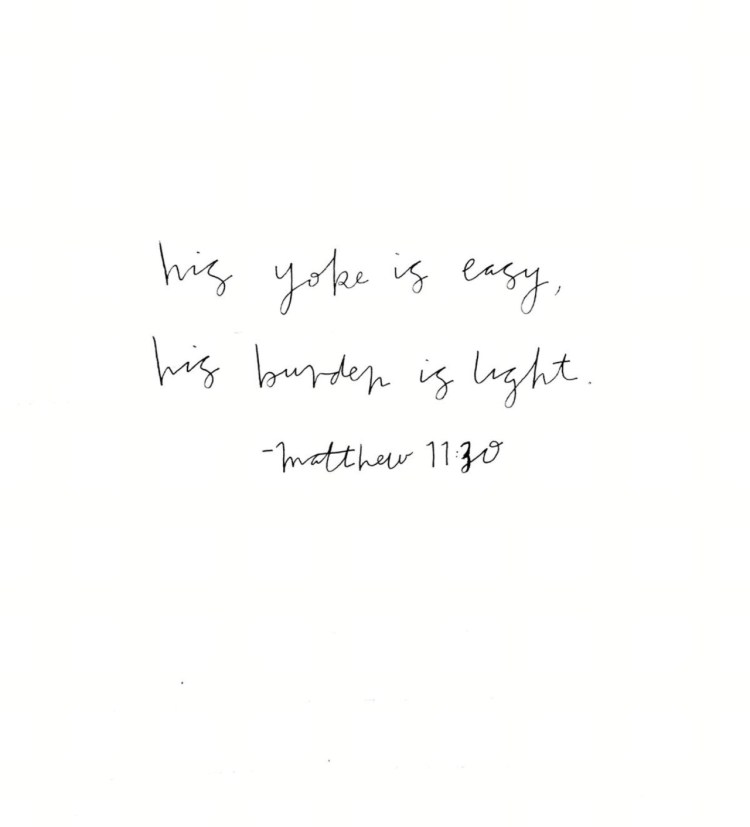 his yoke is easy,
his burden is light.
-matthew 11:30